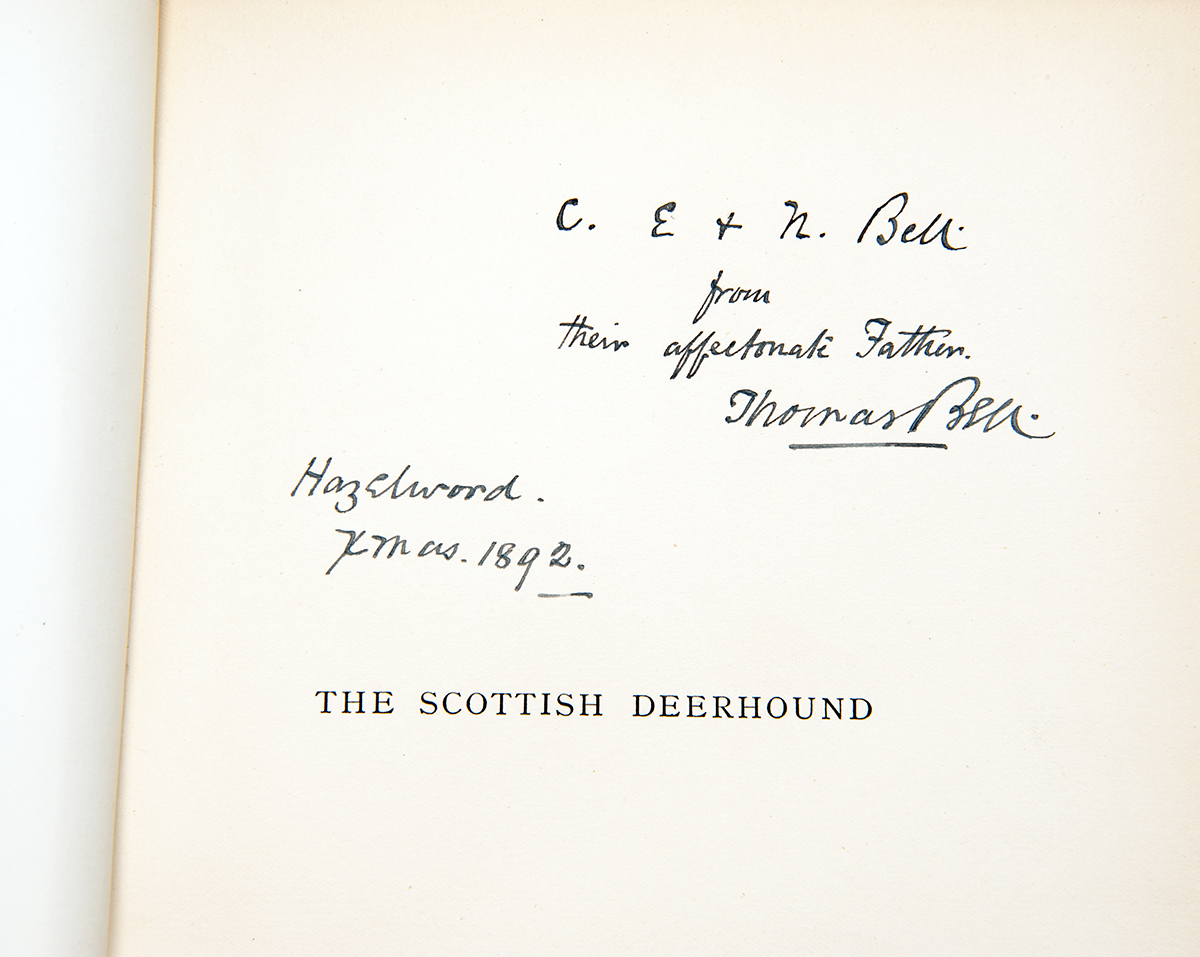 C. E + N. Bell.
from
their affectonate Father.
Thomas Bell.
Hazelwood.
Xmas. 1892.
THE SCOTTISH DEERHOUND